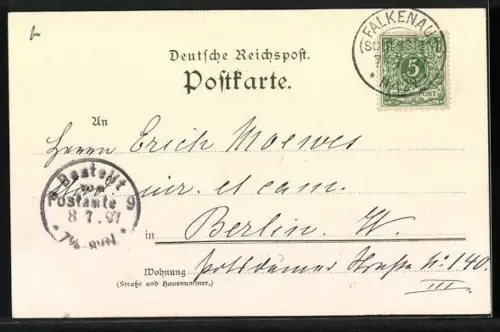 Deutsche Reichspost.
Postkarte.
FALKENAU
5
An
Herrn Erich Moewes
jur. et cam.
Bestellt
vom
Postamte 9
8.7.97
in Berlin. W.
Wohnung Potsdamer Straße No. 140.
(Straße und Hausnummer.)
III.